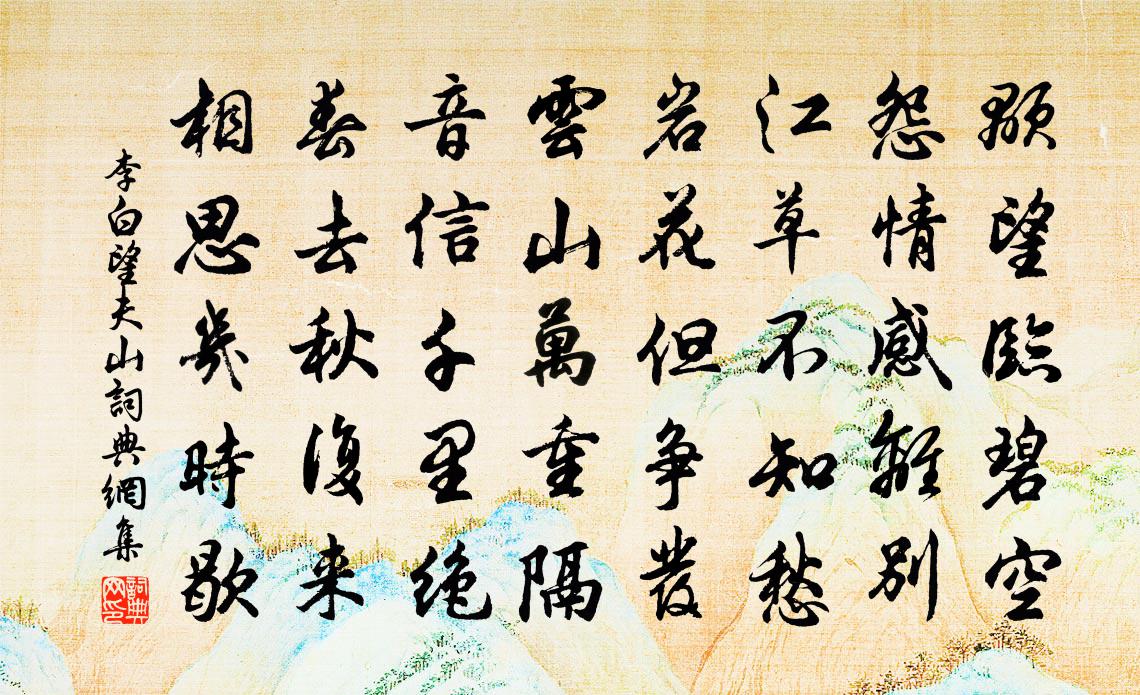 顒望臨碧空
怨情感離別
江草不知愁
岩花但争發
雲山萬重隔
音信千里绝
春去秋復来
相思幾時歇
李白望夫山詞典網集
詞典网印